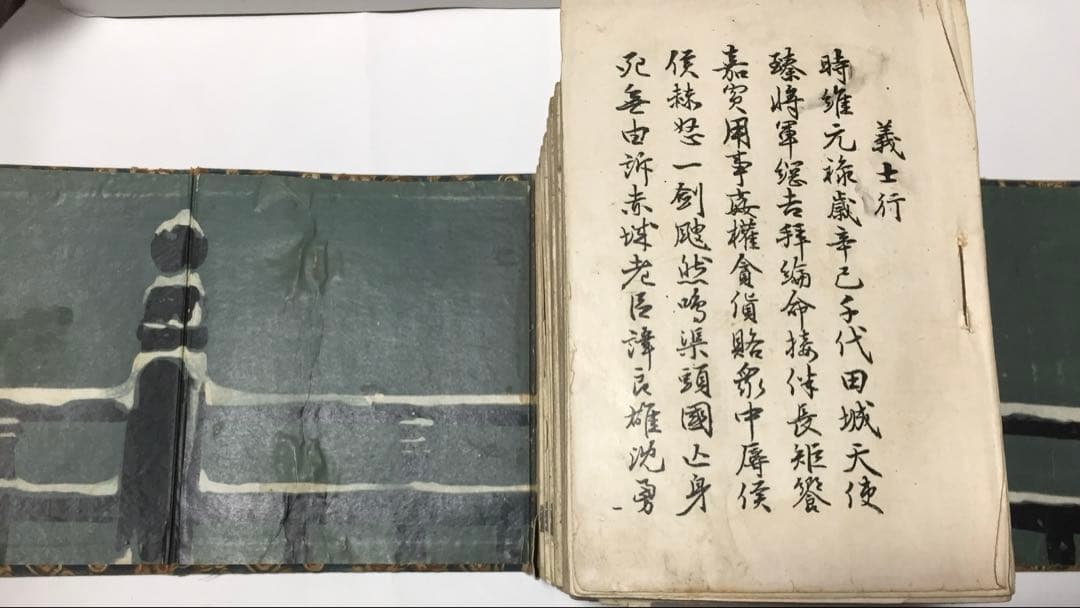 義士行
時維元祿歲辛巳千代田城天使
臻將軍綱吉拜綸命接伴長矩饗
嘉賓用事姦權貪貨賂衆中辱侯
侯赫怒一劍然鳴渠頭國亡身
死無由訴赤城老臣諱良雄沈勇
一